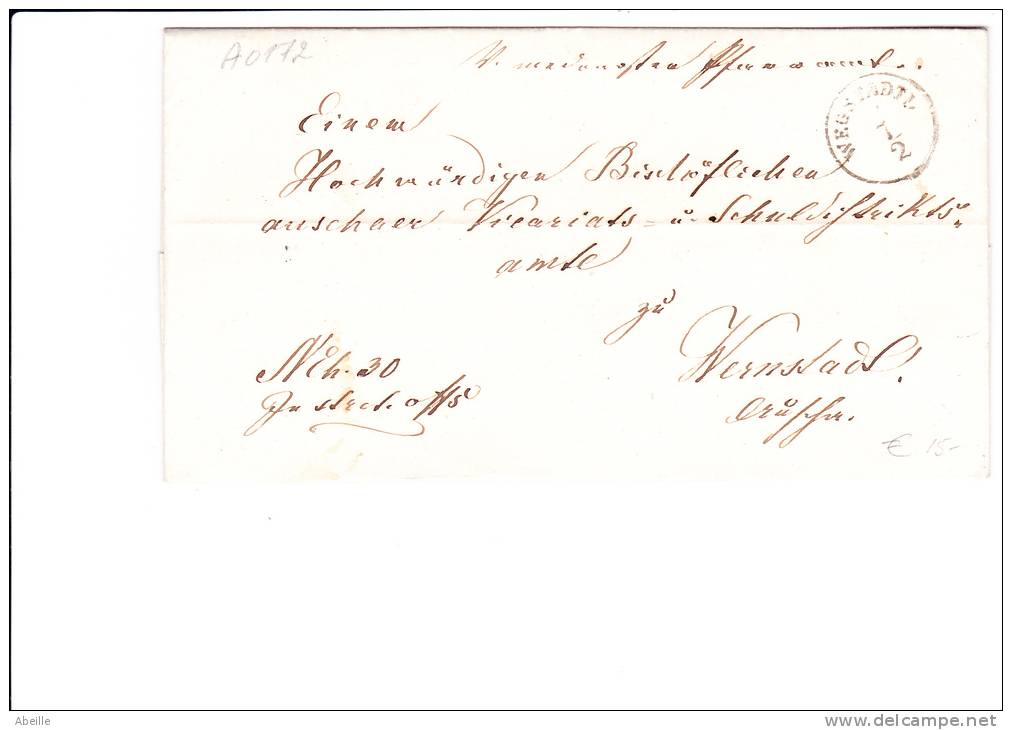 A0172
V. Pfarramt..
WEGSTADTL
1/2
Einem
Hochwürdigen Bischöflichen
auschaer Vicariats= u. Schuldistrikts=
amte
zu
Wernstadt.
NEh. 30
€ 15-
Abeille
www.delcampe.net